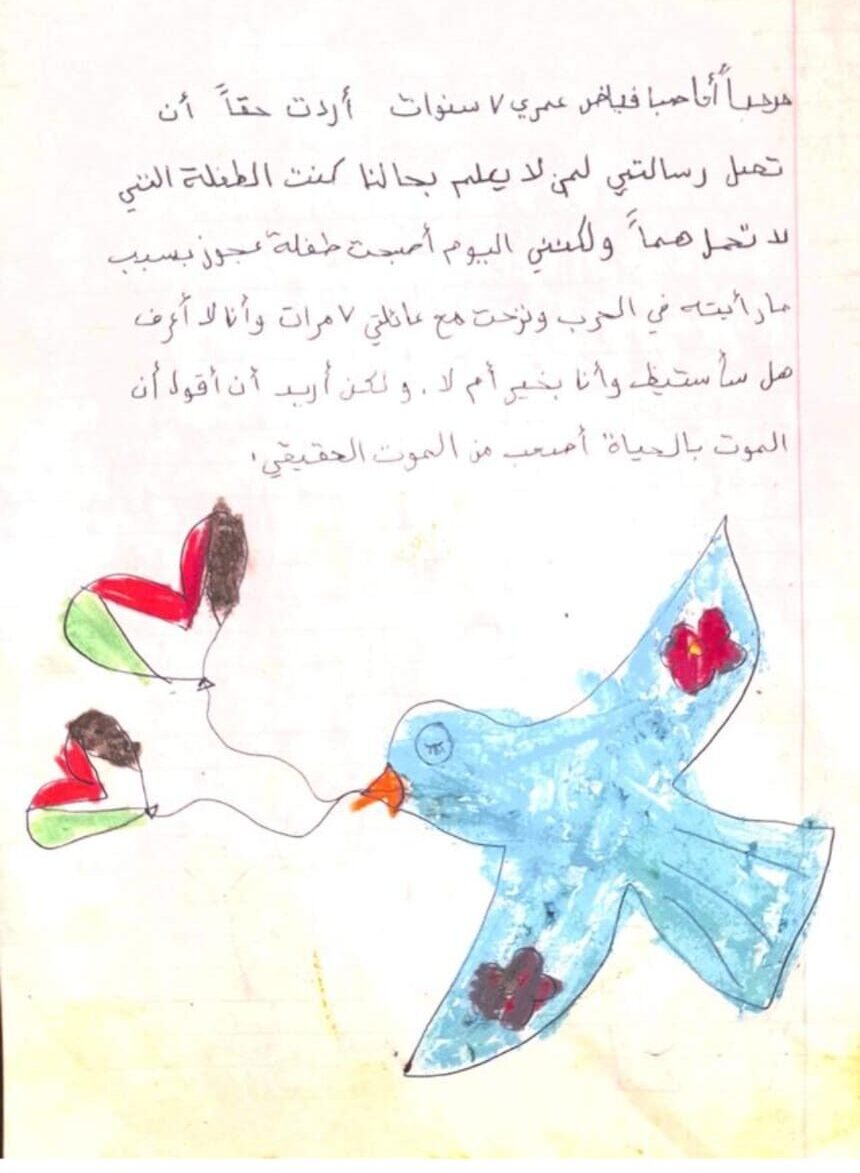 مرحباً أنا صبا فياض عمري ٧ سنوات أردت حقاً أن
تصل رسالتي لمن لا يعلم بحالنا كنت الطفلة التي
لا تحمل هماً ولكنني اليوم أصبحت طفلة عجوز بسبب
ما رأيته في الحرب ونزحت مع عائلتي ٧ مرات وأنا لا أعرف
هل سأستيقظ وأنا بخير أم لا. ولكن أريد أن أقول أن
الموت بالحياة أصعب من الموت الحقيقي.